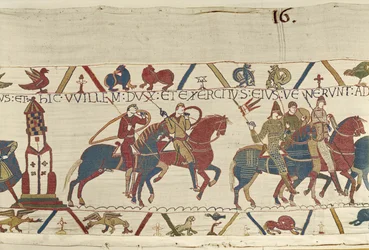 16.
US: ET hIC: VVILLEM: DVX: ET EXERCITVS: EIVS: VENERVNT: AD